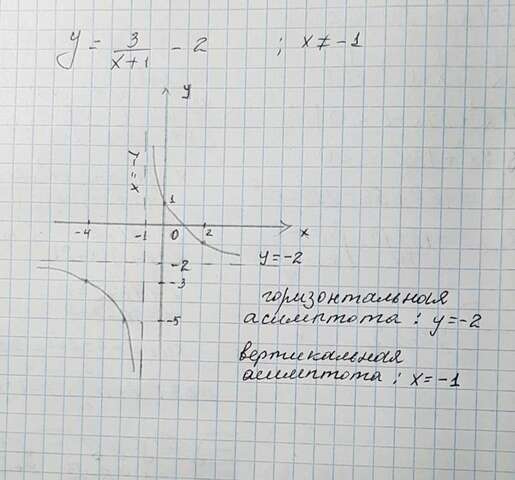 y = 3/(x+1) - 2 ; x ≠ -1
y
x=-1
1
-4 -1 0 2 x
y=-2
-2
-3
-5
горизонтальная
асимптота: y=-2
вертикальная
асимптота; x=-1